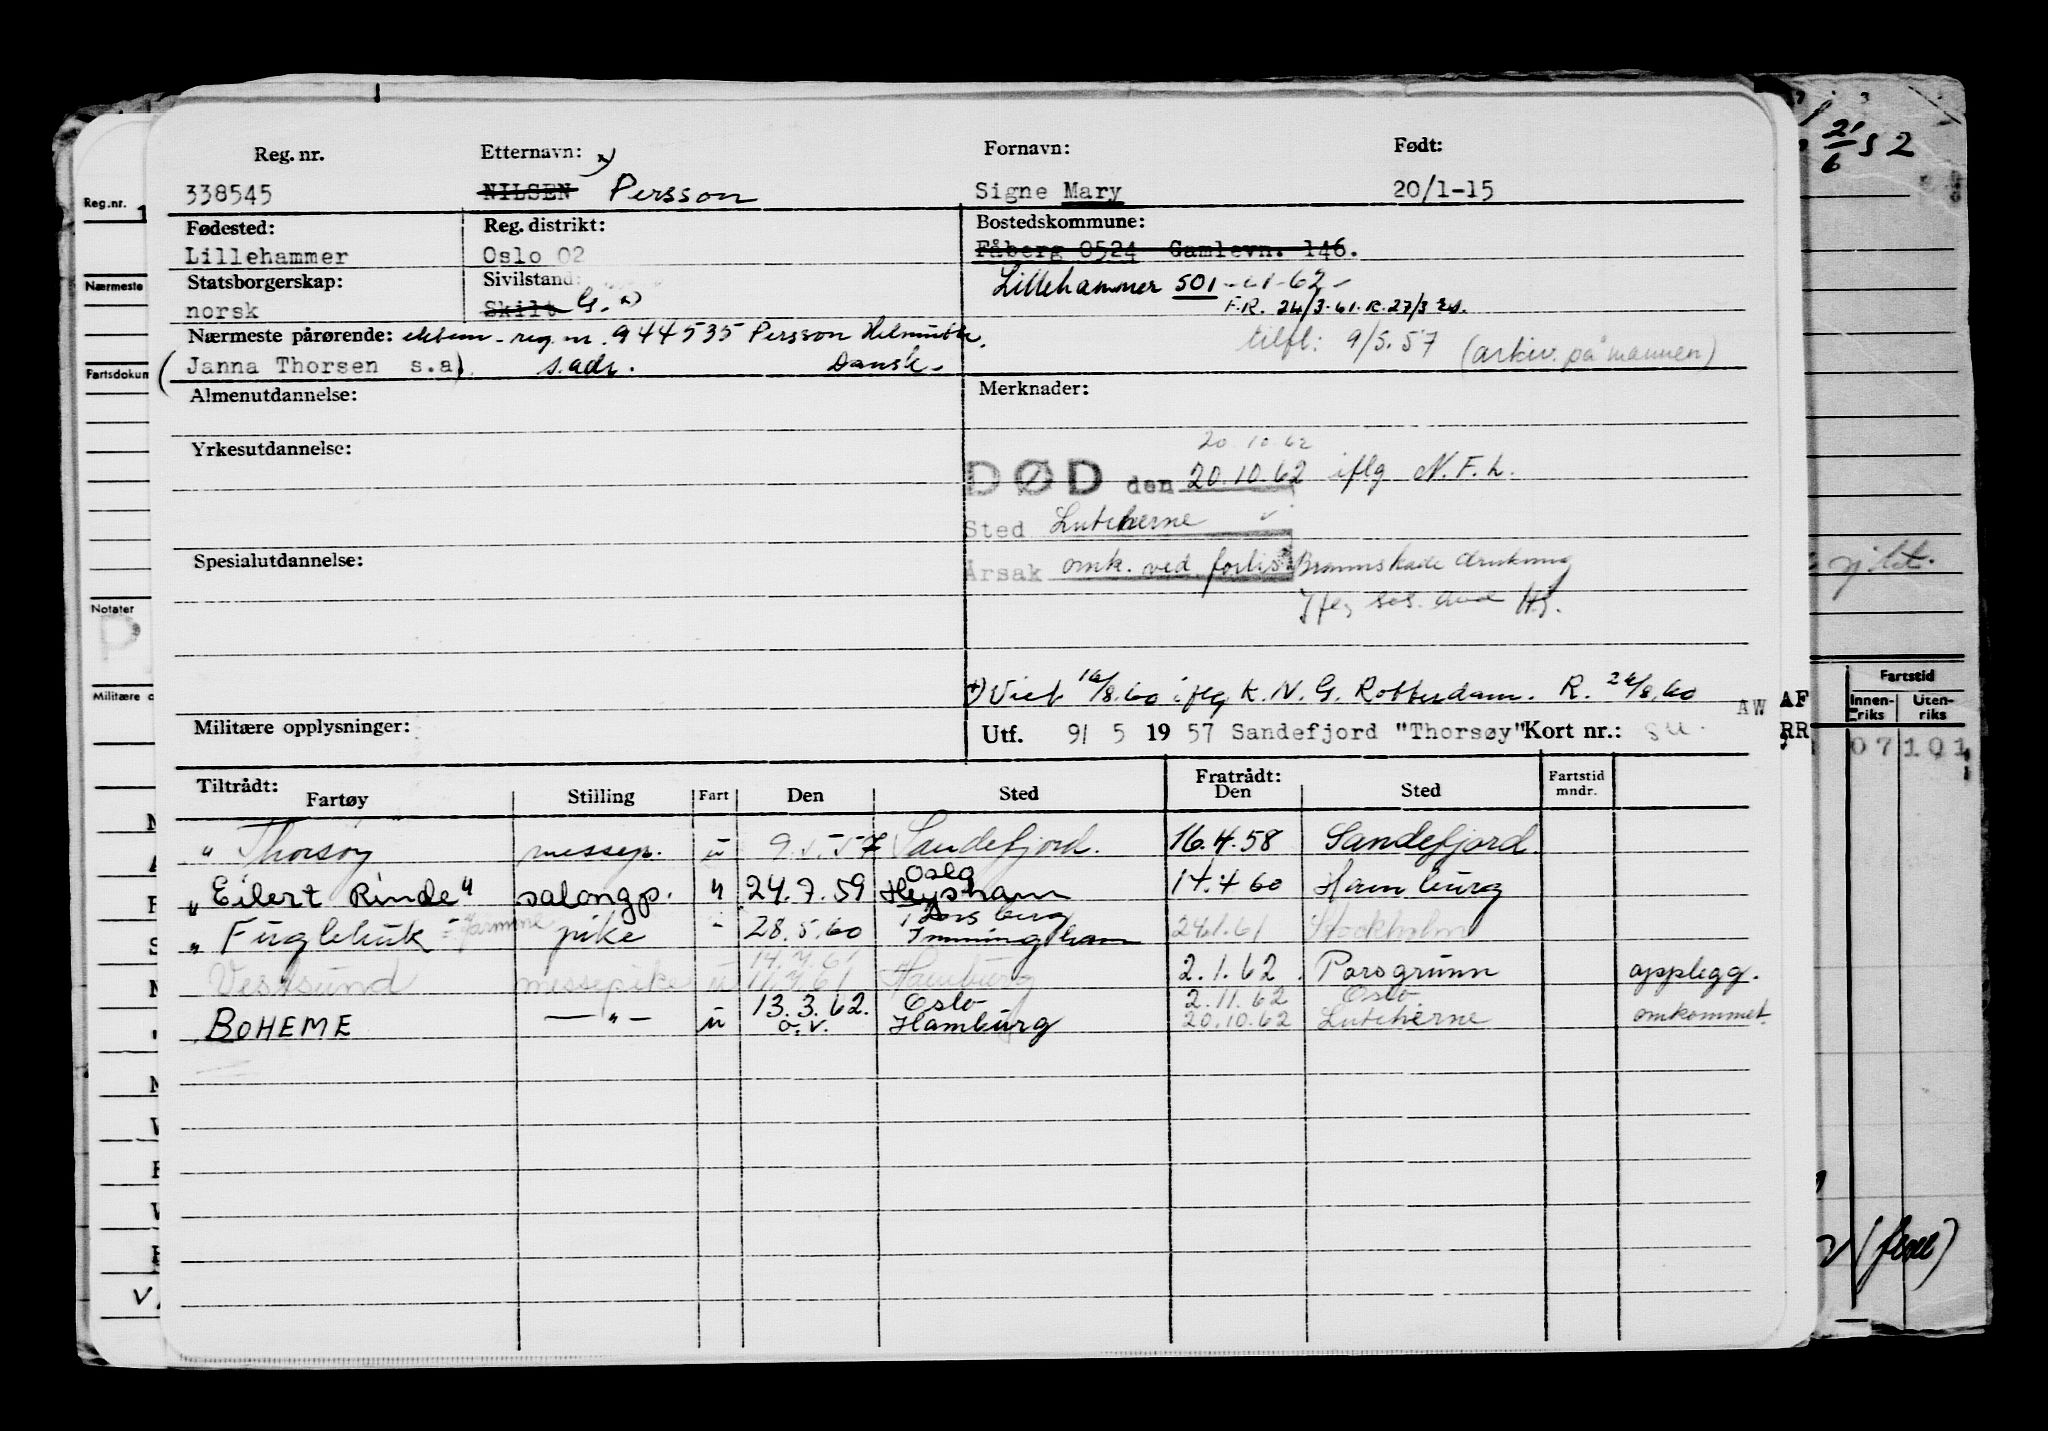 Reg. nr. Etternavn: x) Fornavn: Født:
338545 NILSEN Persson Signe Mary 20/1-15
Fødested: Reg. distrikt: Bostedskommune:
Lillehammer Oslo 02 Fåberg 0524 Gamlevn. 146.
Statsborgerskap: Sivilstand: Lillehammer 501
norsk Skilt G. x) F.R. 24/3-61. R. 27/3
Nærmeste pårørende: ektem. reg. nr. 944535 Persson Helmuth.
tilfl: 9/5.57 (arkiv. på mannen)
(Janna Thorsen s.a). s.adr. Dansk.
Almenutdannelse: Merknader:
Yrkesutdannelse: 20.10.62
DØD den 20.10.62 iflg N.F.h.
Sted Lutcherne
Spesialutdannelse: Årsak omk. ved forlis. Brannskade drukning
Iflg
x) Viet 16/8.60 iflg K.N.G. Rotterdam. R. 26/8.60
AW
Militære opplysninger: Utf. 9/ 5 1957 Sandefjord "Thorsøy" Kort nr.:
Tiltrådt: Fratrådt:
Fartøy Stilling Fart Den Sted Den Sted Fartstid mndr.
" Thorsøy messep. u 9.5.57 Sandefjord. 16.4.58 Sandefjord.
Oslo
"Eilert Rinde" salongp. " 24.7.59 Heysham 14.4 60 Hamburg
Tønsberg
" Fuglehuk pike " 28.5.60 Immingham 24.1.61 Stockholm
14.4.61
Vestsund messepike u 11.4.61 Hamburg 2.1.62. Porsgrunn opplegg.
13.3.62. Oslo 2.11.62 Oslo
BOHEME — " — u o.v. Hamburg 20.10.62 Lutcherne omkommet.
Reg.nr. 1
Nærmeste
Fartsdokum
Notater
P
Militære o
21/6 52
Fartstid
Innen-riks Uten-riks
AF
RR
07 101